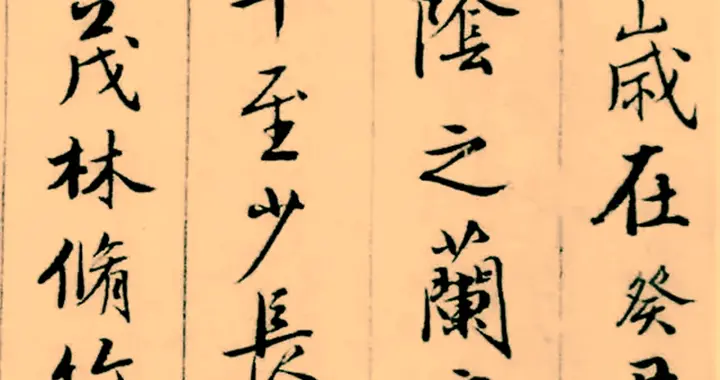 歲在癸
陰之蘭
至少長
茂林脩